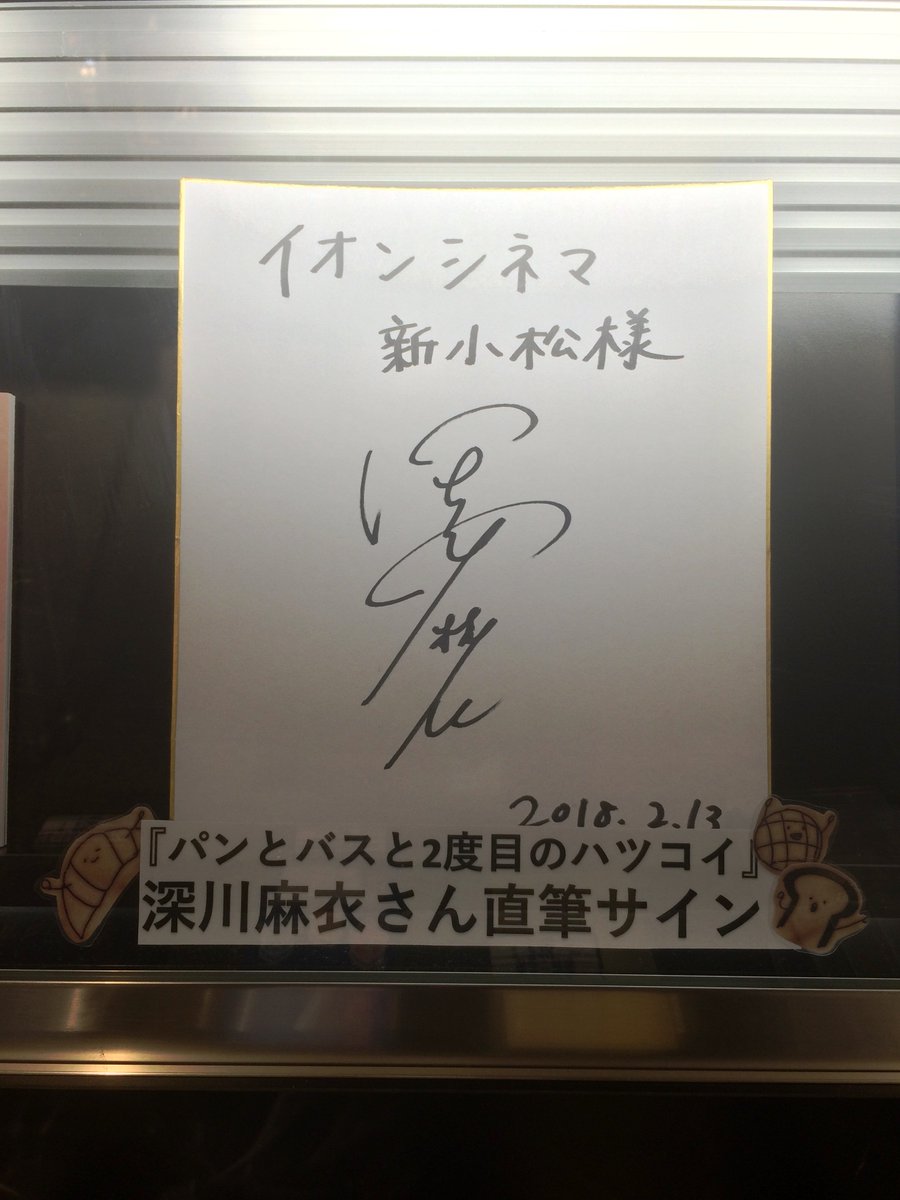 イオンシネマ
新小松様
2018.2.13
『パンとバスと2度目のハツコイ』
深川麻衣さん直筆サイン